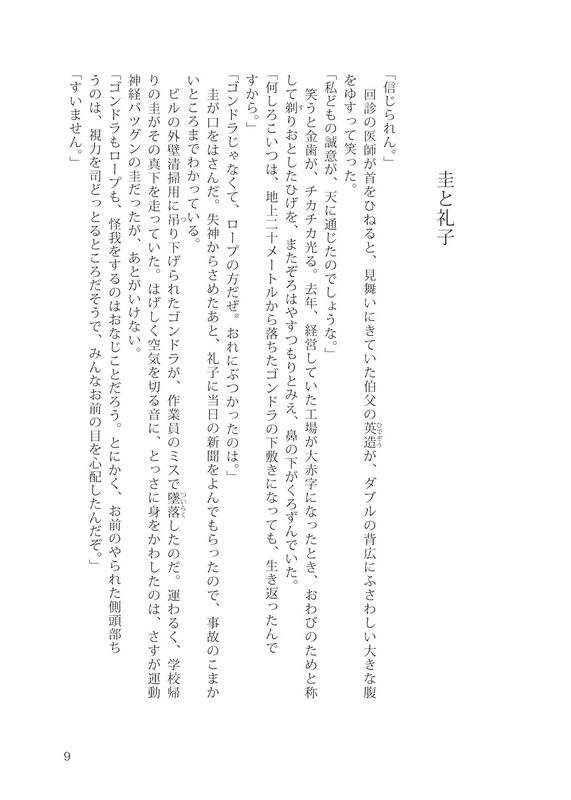 圭と礼子
「信じられん。」
回診の医師が首をひねると、見舞いにきていた伯父の英造が、ダブルの背広にふさわしい大きな腹
ひでぞう
をゆすって笑った。
「私どもの誠意が、天に通じたのでしょうな。」
笑うと金歯が、チカチカ光る。去年、経営していた工場が大赤字になったとき、おわびのためと称
して剃りおとしたひげを、またぞろはやすつもりとみえ、鼻の下がくろずんでいた。
す
「何しろこいつは、地上二十メートルから落ちたゴンドラの下敷きになっても、生き返ったんで
すから。」
「ゴンドラじゃなくて、ロープの方だぜ。おれにぶつかったのは。」
圭が口をはさんだ。失神からさめたあと、礼子に当日の新聞をよんでもらったので、事故のこまか
いところまでわかっている。
ビルの外壁清掃用に吊り下げられたゴンドラが、作業員のミスで墜落したのだ。運わるく、学校帰
つ
ついらく
りの圭がその真下を走っていた。はげしく空気を切る音に、とっさに身をかわしたのは、さすが運動
神経バツグンの圭だったが、あとがいけない。
「ゴンドラもロープも、怪我をするのはおなじことだろう。とにかく、お前のやられた側頭部ち
うのは、視力を司どっとるところだそうで、みんなお前の目を心配したんだぞ。」
「すいません。」
9